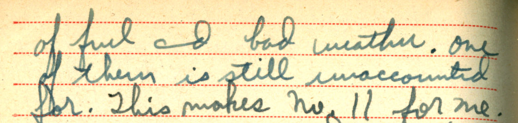 of fuel and bad weather. One
of them is still unaccounted
for. This makes No. 11 for me.